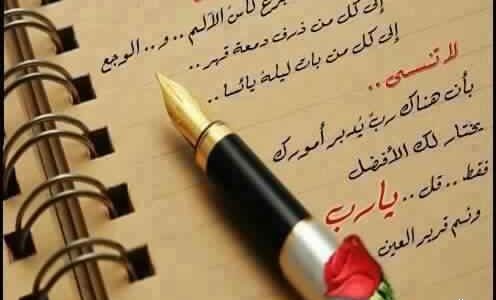 كأس الألم .. و .. الوجع
إلى كل من ذرف دمعة قهر ..
إلى كل من بات ليلة يائسا ..
لا تنسى ..
بأن هناك رب يُدبر أمورك
يختار لك الأفضل
فقط .. قل .. يارب
ونم قرير العين